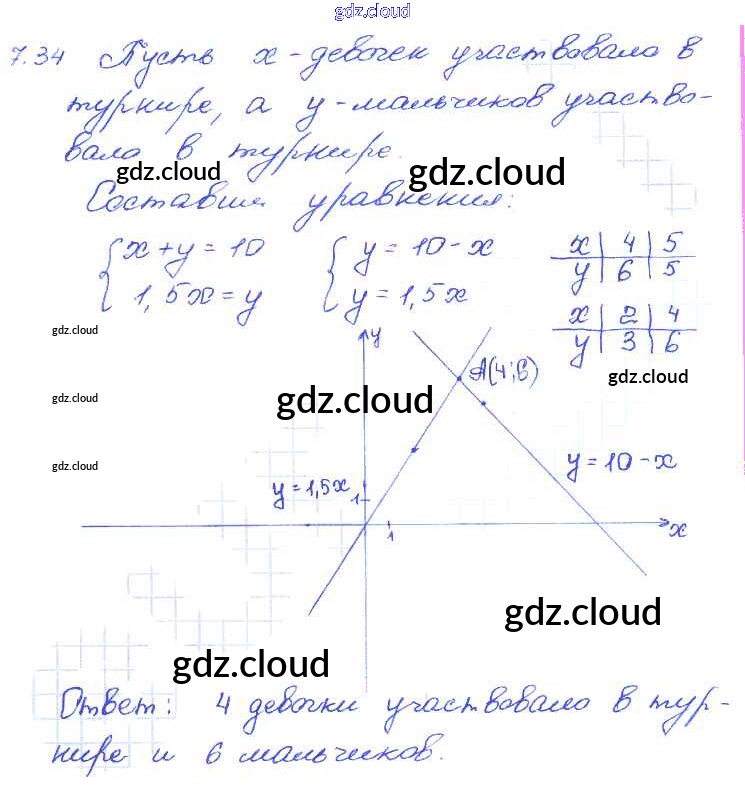 gdz.cloud
7.34 Пусть x - девочек участвовало в
турнире, а y - мальчиков участво-
вало в турнире.
gdz.cloud gdz.cloud
Составим уравнения:
{ x + y = 10 { y = 10 - x x | 4 | 5
1,5x = y y = 1,5x y | 6 | 5
x | 2 | 4
y | 3 | 6
gdz.cloud
y
A(4;6)
gdz.cloud
gdz.cloud gdz.cloud
gdz.cloud
y = 10 - x
y = 1,5x
1
1 x
gdz.cloud
gdz.cloud
Ответ: 4 девочки участвовало в тур-
нире и 6 мальчиков.